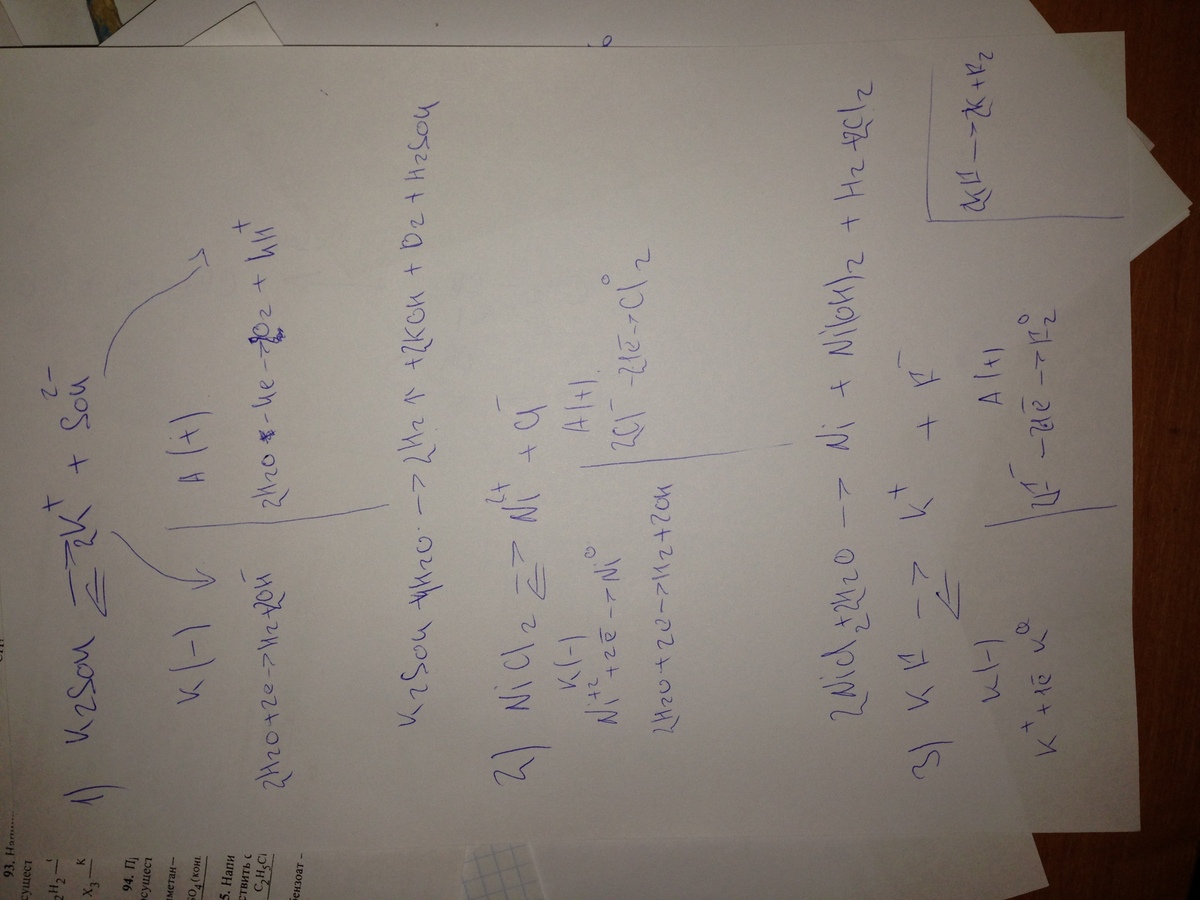 1) K2SO4 ⇄ 2K⁺ + SO4²⁻
K(-) A(+)
2H2O+2e→H2+2OH⁻ 2H2O-4e→O2 + 4H⁺
K2SO4 + 4H2O → 2H2↑ + 2KOH + O2 + H2SO4
2) NiCl2 ⇄ Ni²⁺ + Cl⁻
K(-) A(+)
Ni⁺² + 2ē → Ni⁰ 2Cl⁻ - 2ē → Cl⁰2
2H2O + 2e → H2 + 2OH
2NiCl2 + 2H2O → Ni + Ni(OH)2 + H2 + 2Cl2
3) KF ⇄ K⁺ + F⁻
K(-) A(+)
K⁺ + 1ē K⁰ 2F⁻ - 2ē → F⁰2
2KF → 2K + F2
93.
осущест
94.
осущест
метан –
SO4(конц
5. Напи
ствить с
C2H5Cl
бензоат –